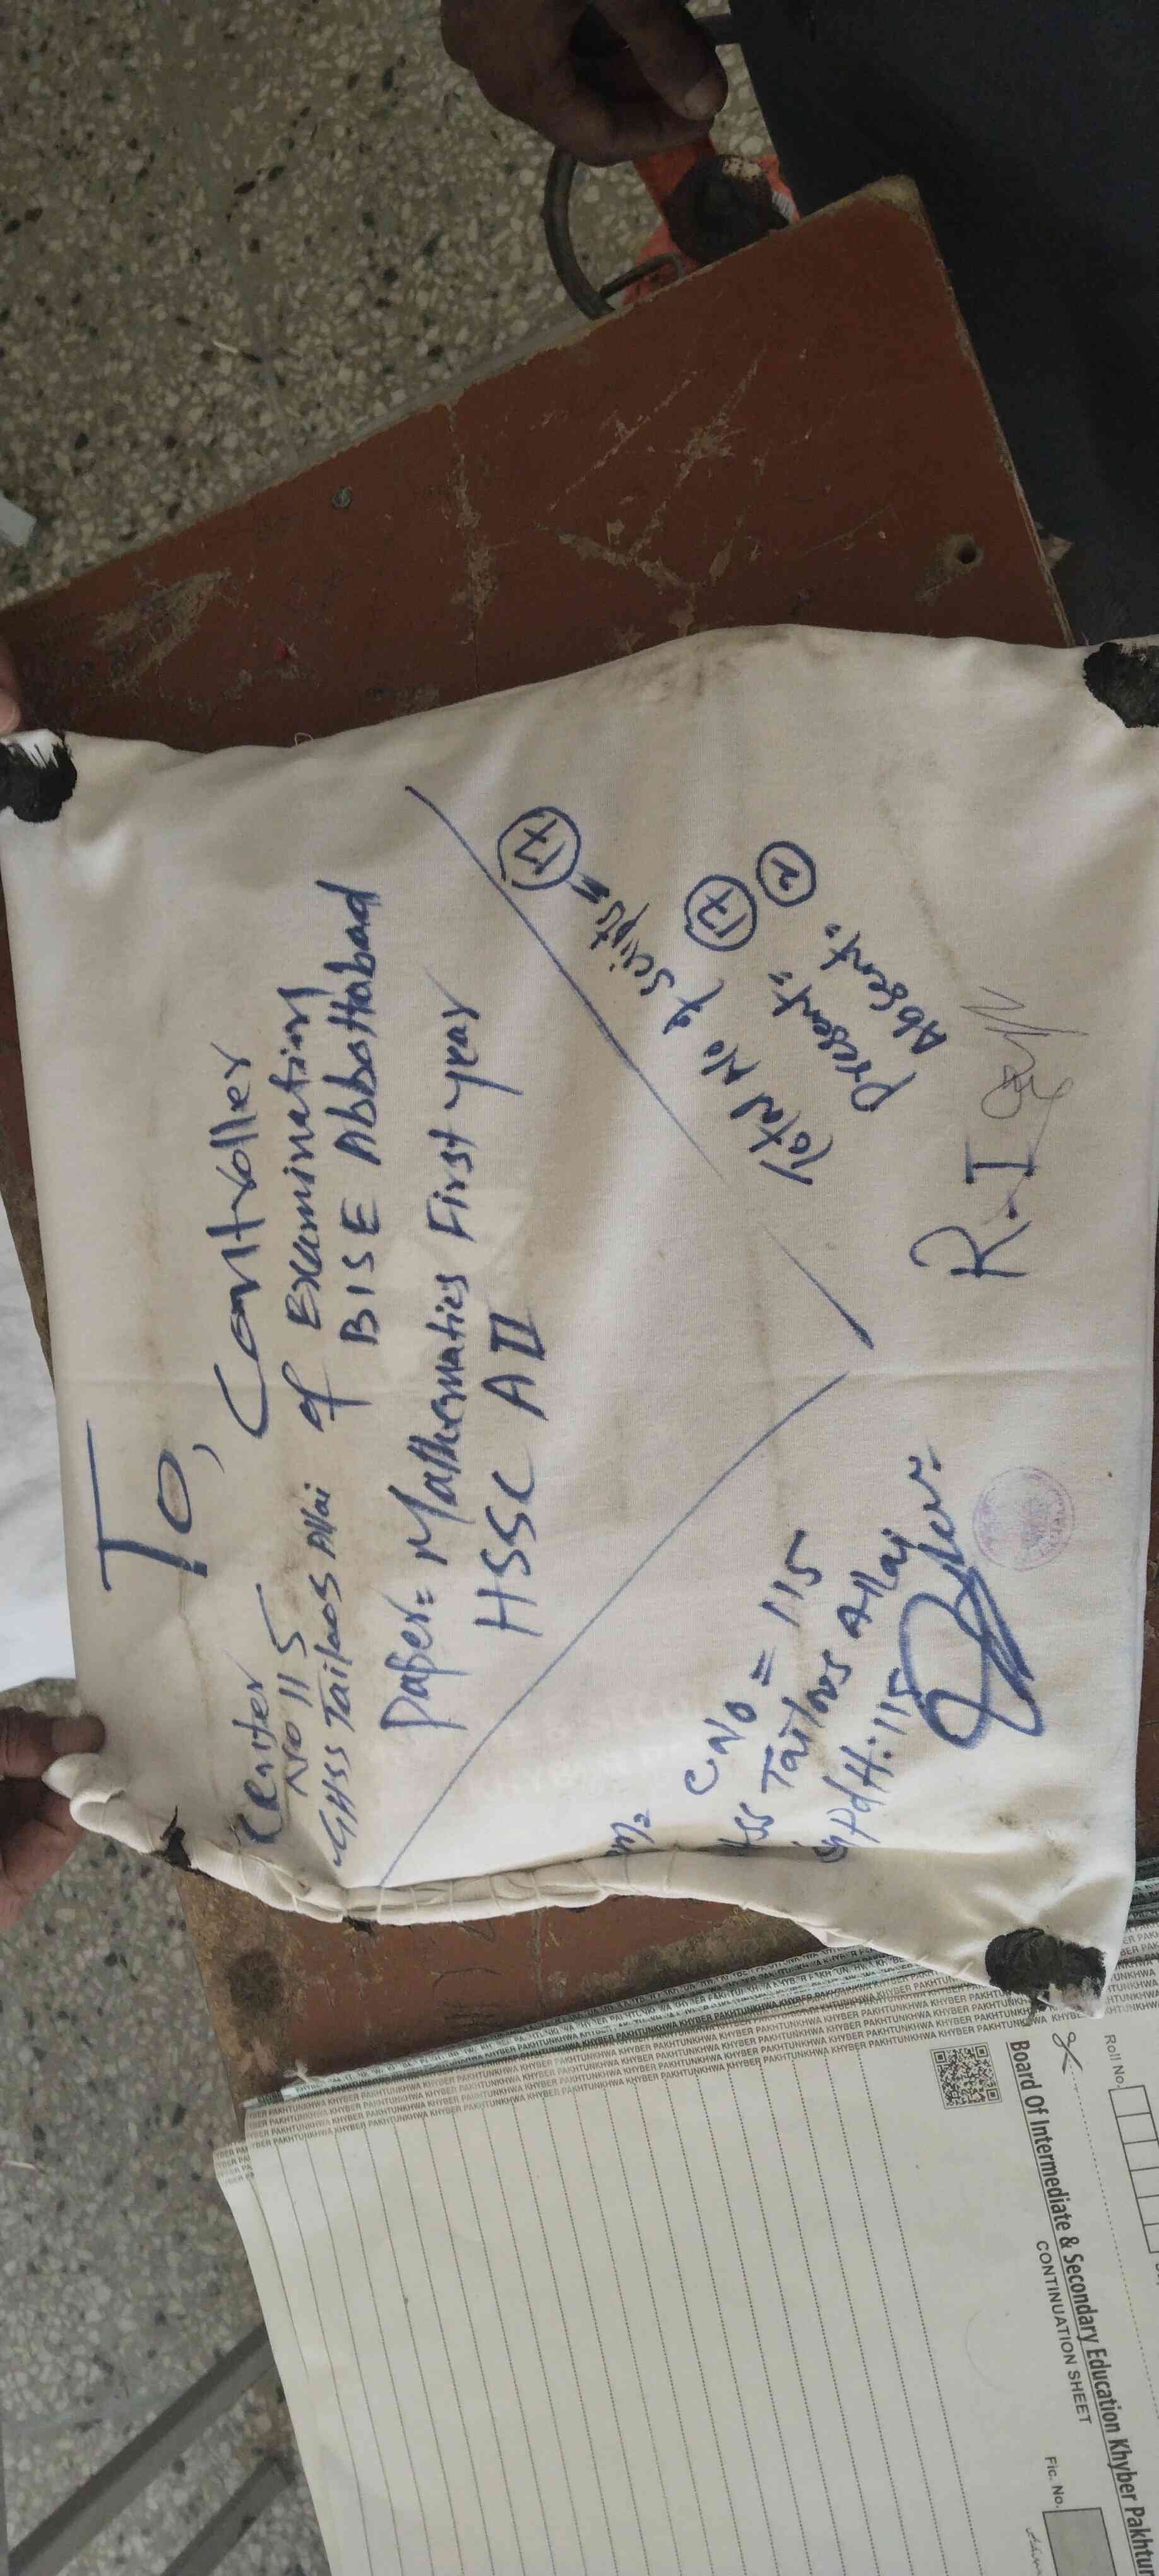 To,
Controller
of Examination
BISE Abbottabad
Center
No 115
GHSS Tailoos Allai
Paper: Mathematics First year
HSSC A II
Total No of Scripts = 17
Present: 17
Absent: 2
C.No = 115
Tailoos Allai
115
R.I
Board Of Intermediate & Secondary Education Khyber Pakhtun
CONTINUATION SHEET
Roll No.
Fic. No.
KHYBER PAKHTUNKHWA KHYBER PAKHTUNKHWA KHYBER PAKHTUNKHWA